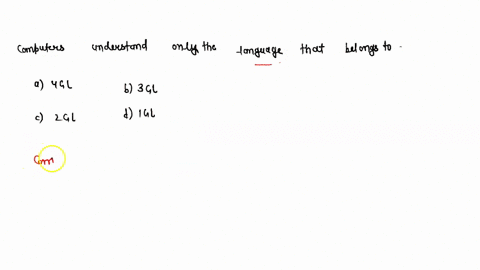 computers understand only the language that belongs to .
a) 4GL b) 3GL
c) 2GL d) 1GL
Corr